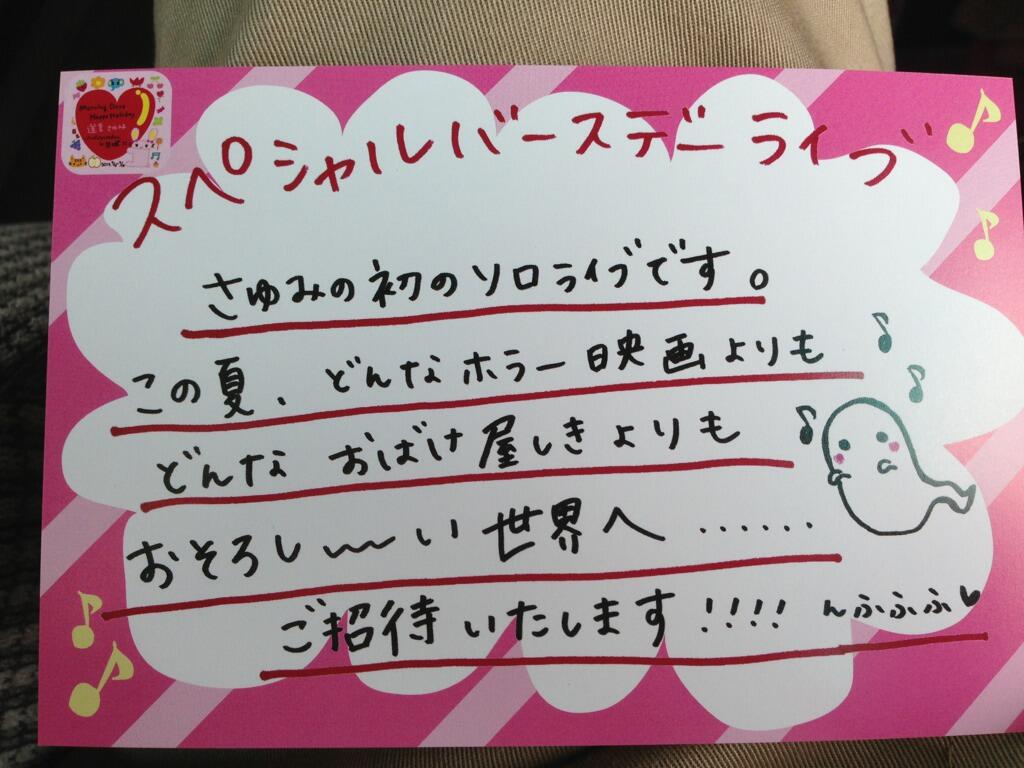 Morning Days
Happy Holiday
道重さゆみ
スペシャルバースデーライブ
さゆみの初のソロライブです。
この夏、どんなホラー映画よりも
どんなおばけ屋しきよりも
おそろし〜〜い世界へ……
ご招待いたします!!!! んふふふ♥